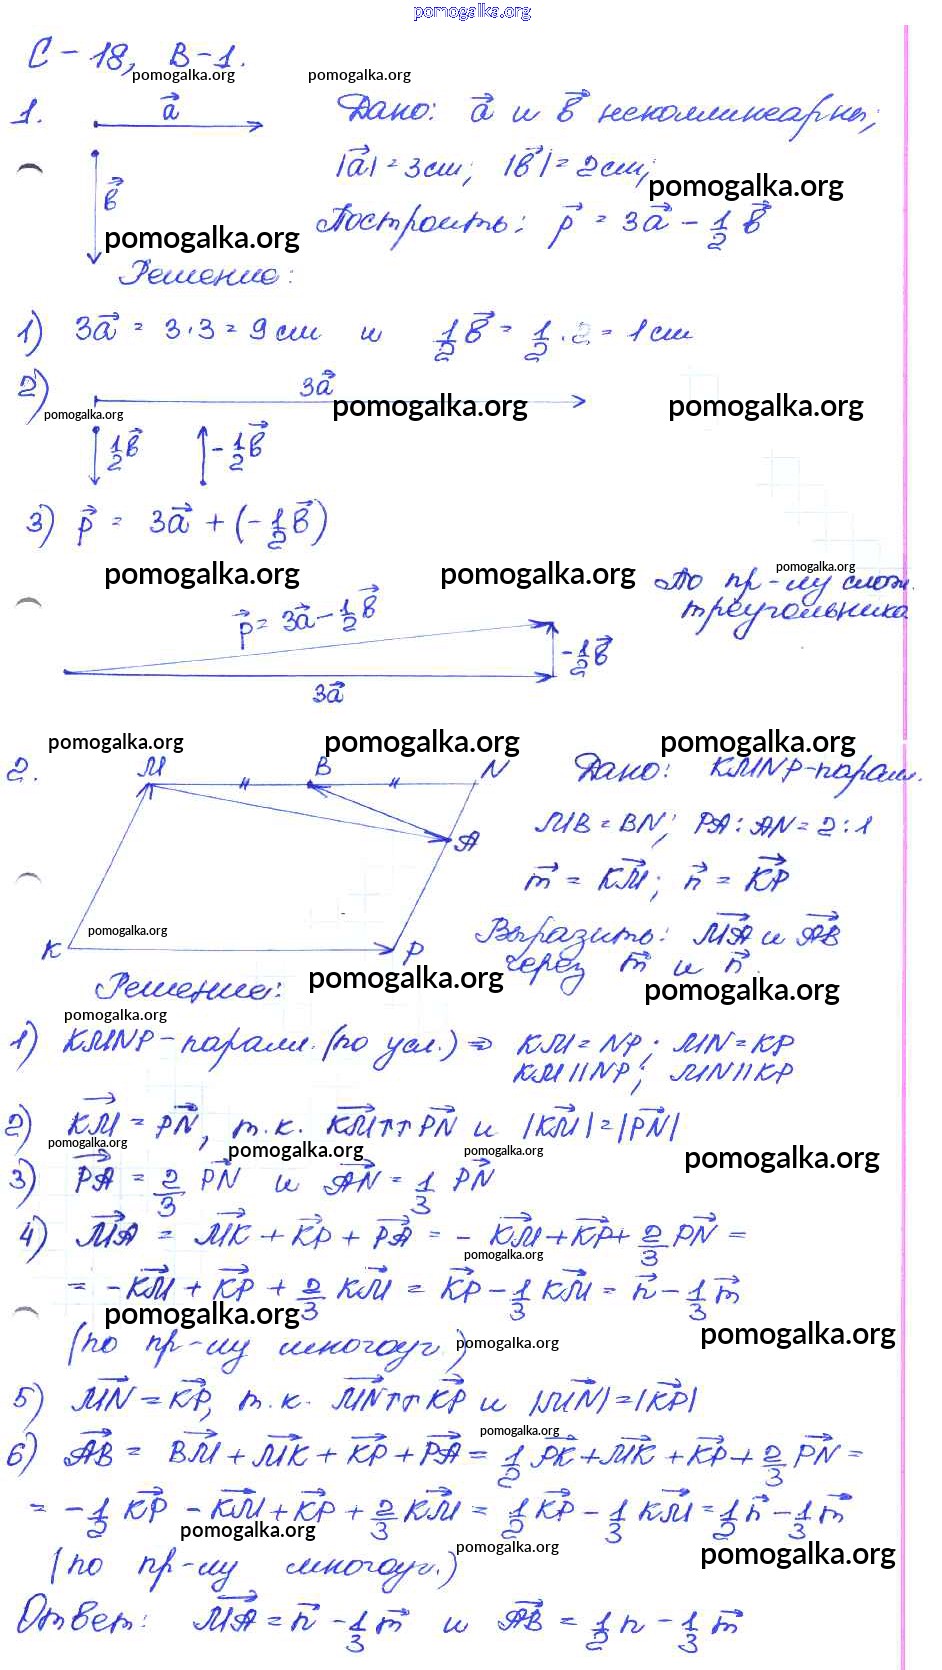 pomogalka.org
С-18, В-1.
pomogalka.org pomogalka.org
1. a⃗ Дано: a⃗ и b⃗ неколлинеарны;
b⃗ |a⃗| = 3см; |b⃗| = 2см;
pomogalka.org
pomogalka.org Построить: p⃗ = 3a⃗ - 1/2 b⃗
Решение:
1) 3a⃗ = 3·3 = 9см и 1/2 b⃗ = 1/2 · 2 = 1см
2) 3a⃗
pomogalka.org pomogalka.org pomogalka.org
1/2 b⃗ -1/2 b⃗
3) p⃗ = 3a⃗ + (-1/2 b⃗)
pomogalka.org pomogalka.org pomogalka.org
По пр-лу слож.
треугольника
p⃗ = 3a⃗ - 1/2 b⃗
-1/2 b⃗
3a⃗
pomogalka.org pomogalka.org pomogalka.org
2. M B N Дано: KMNP-паралл.
A MB = BN; PA : AN = 2 : 1
m⃗ = KM⃗; n⃗ = KP⃗
pomogalka.org
K P Выразить: MA⃗ и AB⃗
через m⃗ и n⃗.
pomogalka.org pomogalka.org
Решение:
pomogalka.org
1) KMNP - паралл. (по усл.) ⇒ KM = NP; MN = KP
KM || NP; MN || KP
2) KM⃗ = PN⃗, т.к. KM⃗ ↑↑ PN⃗ и |KM⃗| = |PN⃗|
pomogalka.org pomogalka.org pomogalka.org pomogalka.org
3) PA⃗ = 2/3 PN⃗ и AN⃗ = 1/3 PN⃗
4) MA⃗ = MK⃗ + KP⃗ + PA⃗ = - KM⃗ + KP⃗ + 2/3 PN⃗ =
pomogalka.org
= -KM⃗ + KP⃗ + 2/3 KM⃗ = KP⃗ - 1/3 KM⃗ = n⃗ - 1/3 m⃗
pomogalka.org pomogalka.org pomogalka.org
(по пр-лу многоуг.)
5) MN⃗ = KP⃗, т.к. MN⃗ ↑↑ KP⃗ и |MN⃗| = |KP⃗|
pomogalka.org
6) AB⃗ = BM⃗ + MK⃗ + KP⃗ + PA⃗ = 1/2 PK⃗ + MK⃗ + KP⃗ + 2/3 PN⃗ =
= -1/2 KP⃗ - KM⃗ + KP⃗ + 2/3 KM⃗ = 1/2 KP⃗ - 1/3 KM⃗ = 1/2 n⃗ - 1/3 m⃗
pomogalka.org pomogalka.org pomogalka.org
(по пр-лу многоуг.)
Ответ: MA⃗ = n⃗ - 1/3 m⃗ и AB⃗ = 1/2 n - 1/3 m⃗